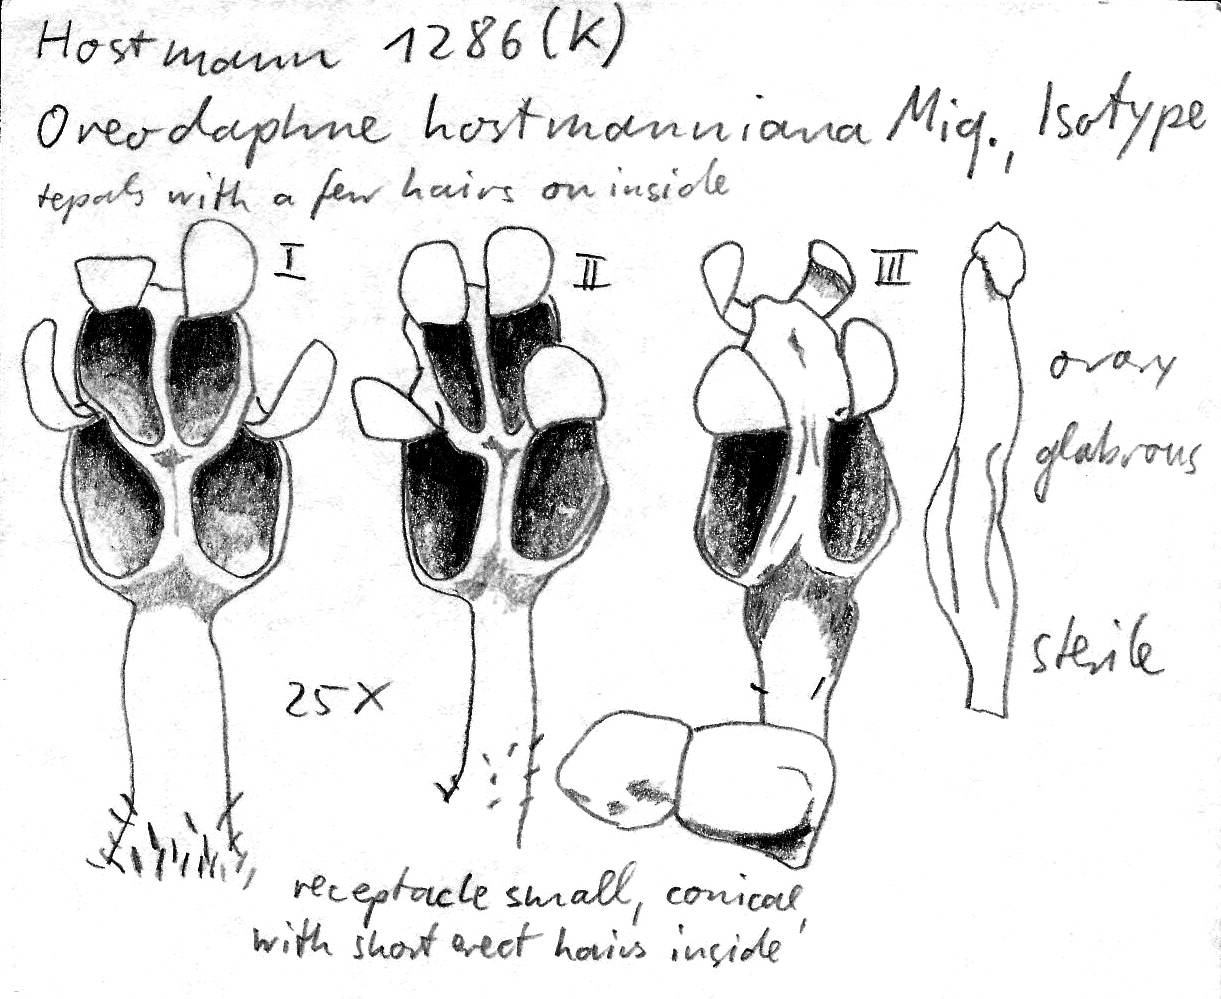 Hostmann 1286 (K)
Oreodaphne hostmanniana Miq., Isotype
tepals with a few hairs on inside
I
II
III
ovary
glabrous
sterile
25 X
receptacle small, conical,
with short erect hairs inside